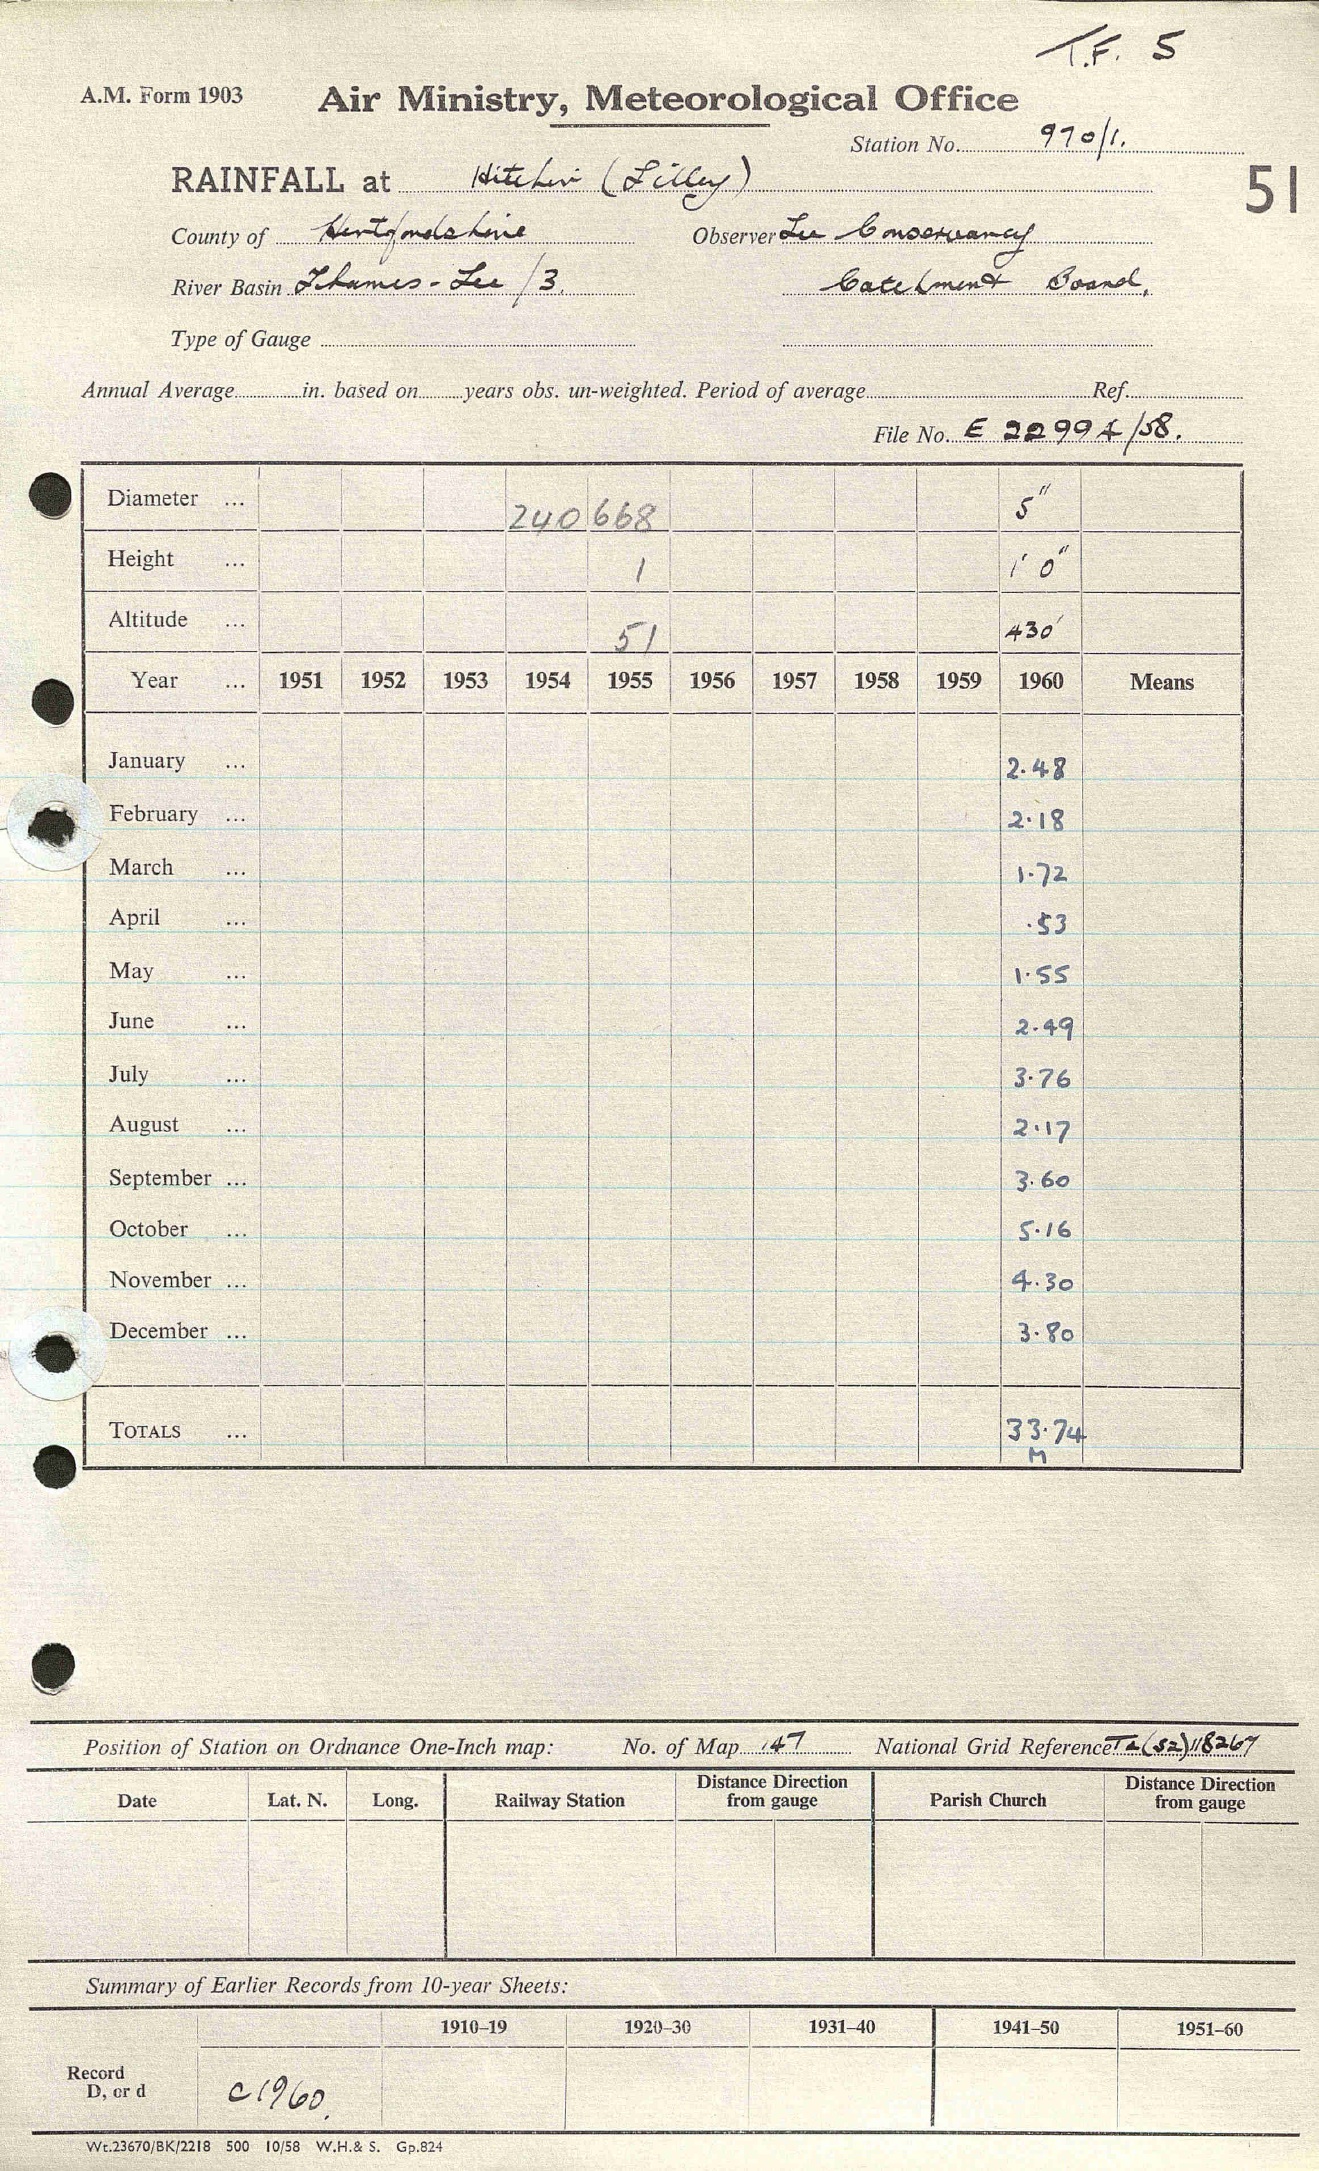 T.F. 5
A.M. Form 1903 Air Ministry, Meteorological Office
Station No. 970/1.
RAINFALL at Hitchin (Lilley)
51
County of Hertfordshire Observer Lee Conservancy
River Basin Thames - Lee /3. Catchment Board.
Type of Gauge
Annual Average in. based on years obs. un-weighted. Period of average Ref.
File No. E 22994/58.
Diameter ... 240 668 5"
Height ... 1 1' 0"
Altitude ... 51 430'
Year ... 1951 1952 1953 1954 1955 1956 1957 1958 1959 1960 Means
January ... 2.48
February ... 2.18
March ... 1.72
April ... .53
May ... 1.55
June ... 2.49
July ... 3.76
August ... 2.17
September ... 3.60
October ... 5.16
November ... 4.30
December ... 3.80
TOTALS ... 33.74
M
Position of Station on Ordnance One-Inch map: No. of Map 147 National Grid Reference TL(52)118267
Date Lat. N. Long. Railway Station Distance Direction from gauge Parish Church Distance Direction from gauge
Summary of Earlier Records from 10-year Sheets:
1910–19 1920–30 1931–40 1941–50 1951–60
Record
D, or d C1960.
Wt.23670/BK/2218 500 10/58 W.H.& S. Gp.824